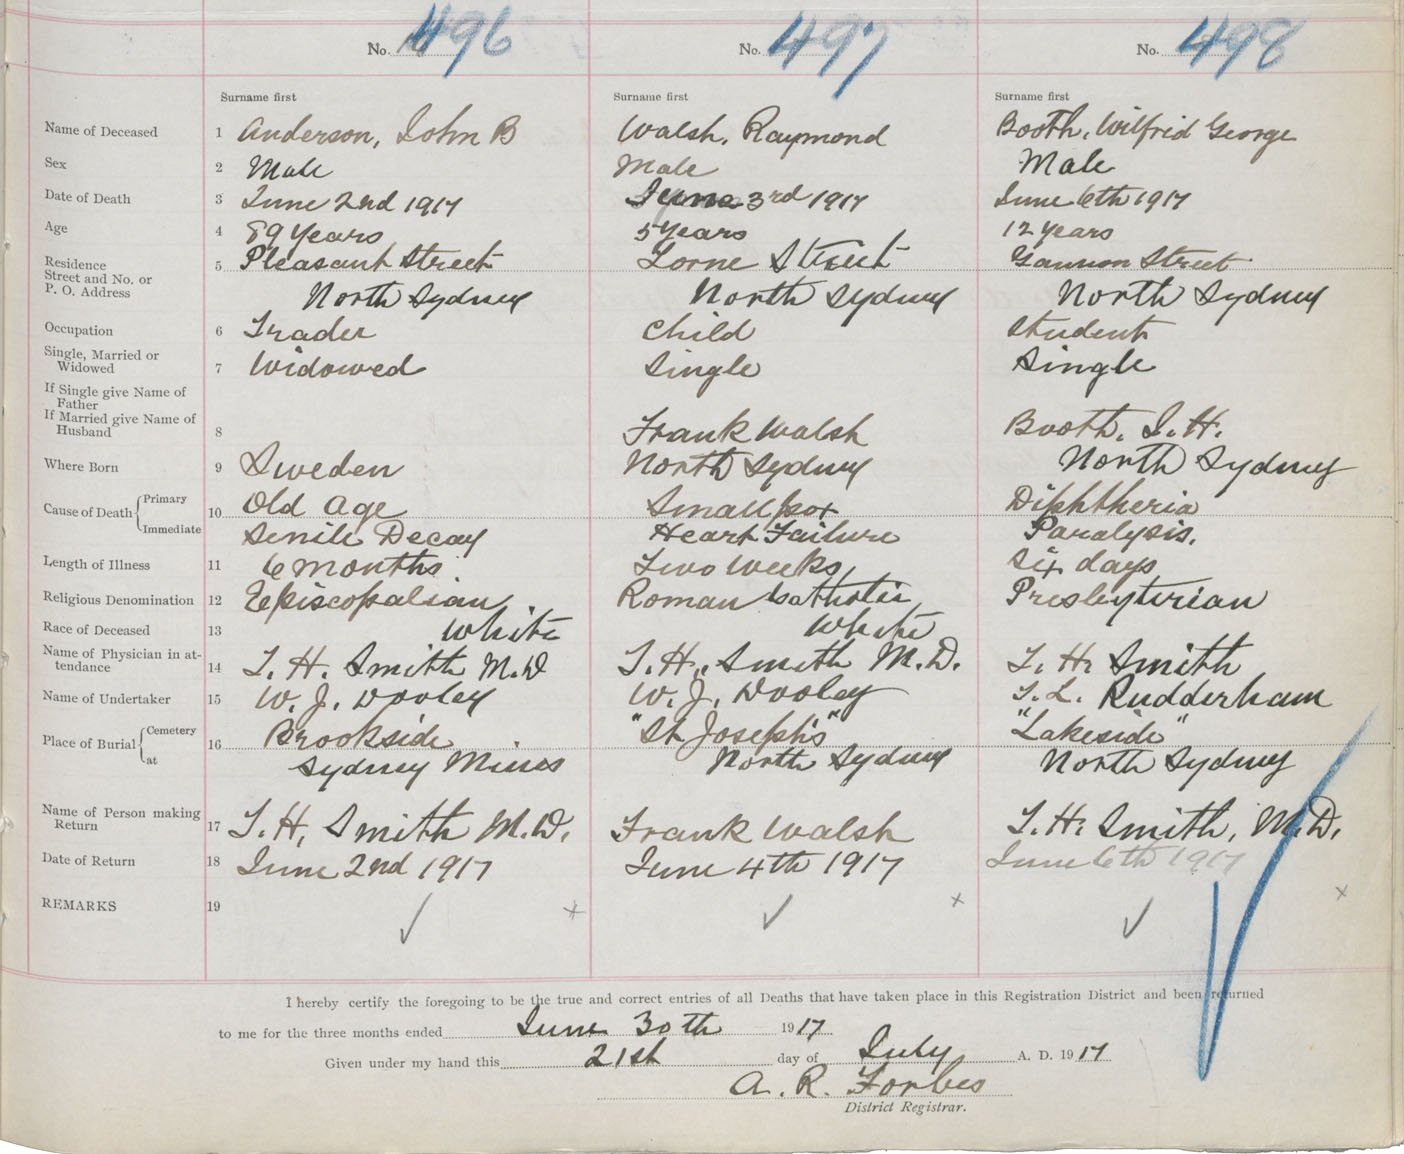 No. 496 No. 497 No. 498
Surname first Surname first Surname first
Name of Deceased 1 Anderson, John B Walsh, Raymond Booth, Wilfrid George
Sex 2 Male Male Male
Date of Death 3 June 2nd 1917 June 3rd 1917 June 6th 1917
Age 4 89 Years 5 Years 12 Years
Residence 5 Pleasant Street Lorne Street Gannon Street
Street and No. or
P. O. Address North Sydney North Sydney North Sydney
Occupation 6 Trader Child Student
Single, Married or
Widowed 7 Widowed Single Single
If Single give Name of
Father
If Married give Name of
Husband 8 Frank Walsh Booth, I. H.
Where Born 9 Sweden North Sydney North Sydney
Cause of Death Primary 10 Old Age Smallpox Diphtheria
Immediate Senile Decay Heart Failure Paralysis.
Length of Illness 11 6 months Two weeks Six days
Religious Denomination 12 Episcopalian Roman Catholic Presbyterian
Race of Deceased 13 White White
Name of Physician in at-
tendance 14 T. H. Smith M.D T. H. Smith M.D. T. H. Smith
Name of Undertaker 15 W. J. Dooley W. J. Dooley T. L. Rudderham
Place of Burial Cemetery 16 Brookside "St Joseph's" "Lakeside"
at Sydney Mines North Sydney North Sydney
Name of Person making
Return 17 T. H. Smith M.D. Frank Walsh T. H. Smith, M.D.
Date of Return 18 June 2nd 1917 June 4th 1917 June 6th 1917
REMARKS 19
I hereby certify the foregoing to be the true and correct entries of all Deaths that have taken place in this Registration District and been returned
to me for the three months ended June 30th 1917
Given under my hand this 21st day of July A. D. 1917
A. R. Forbes
District Registrar.